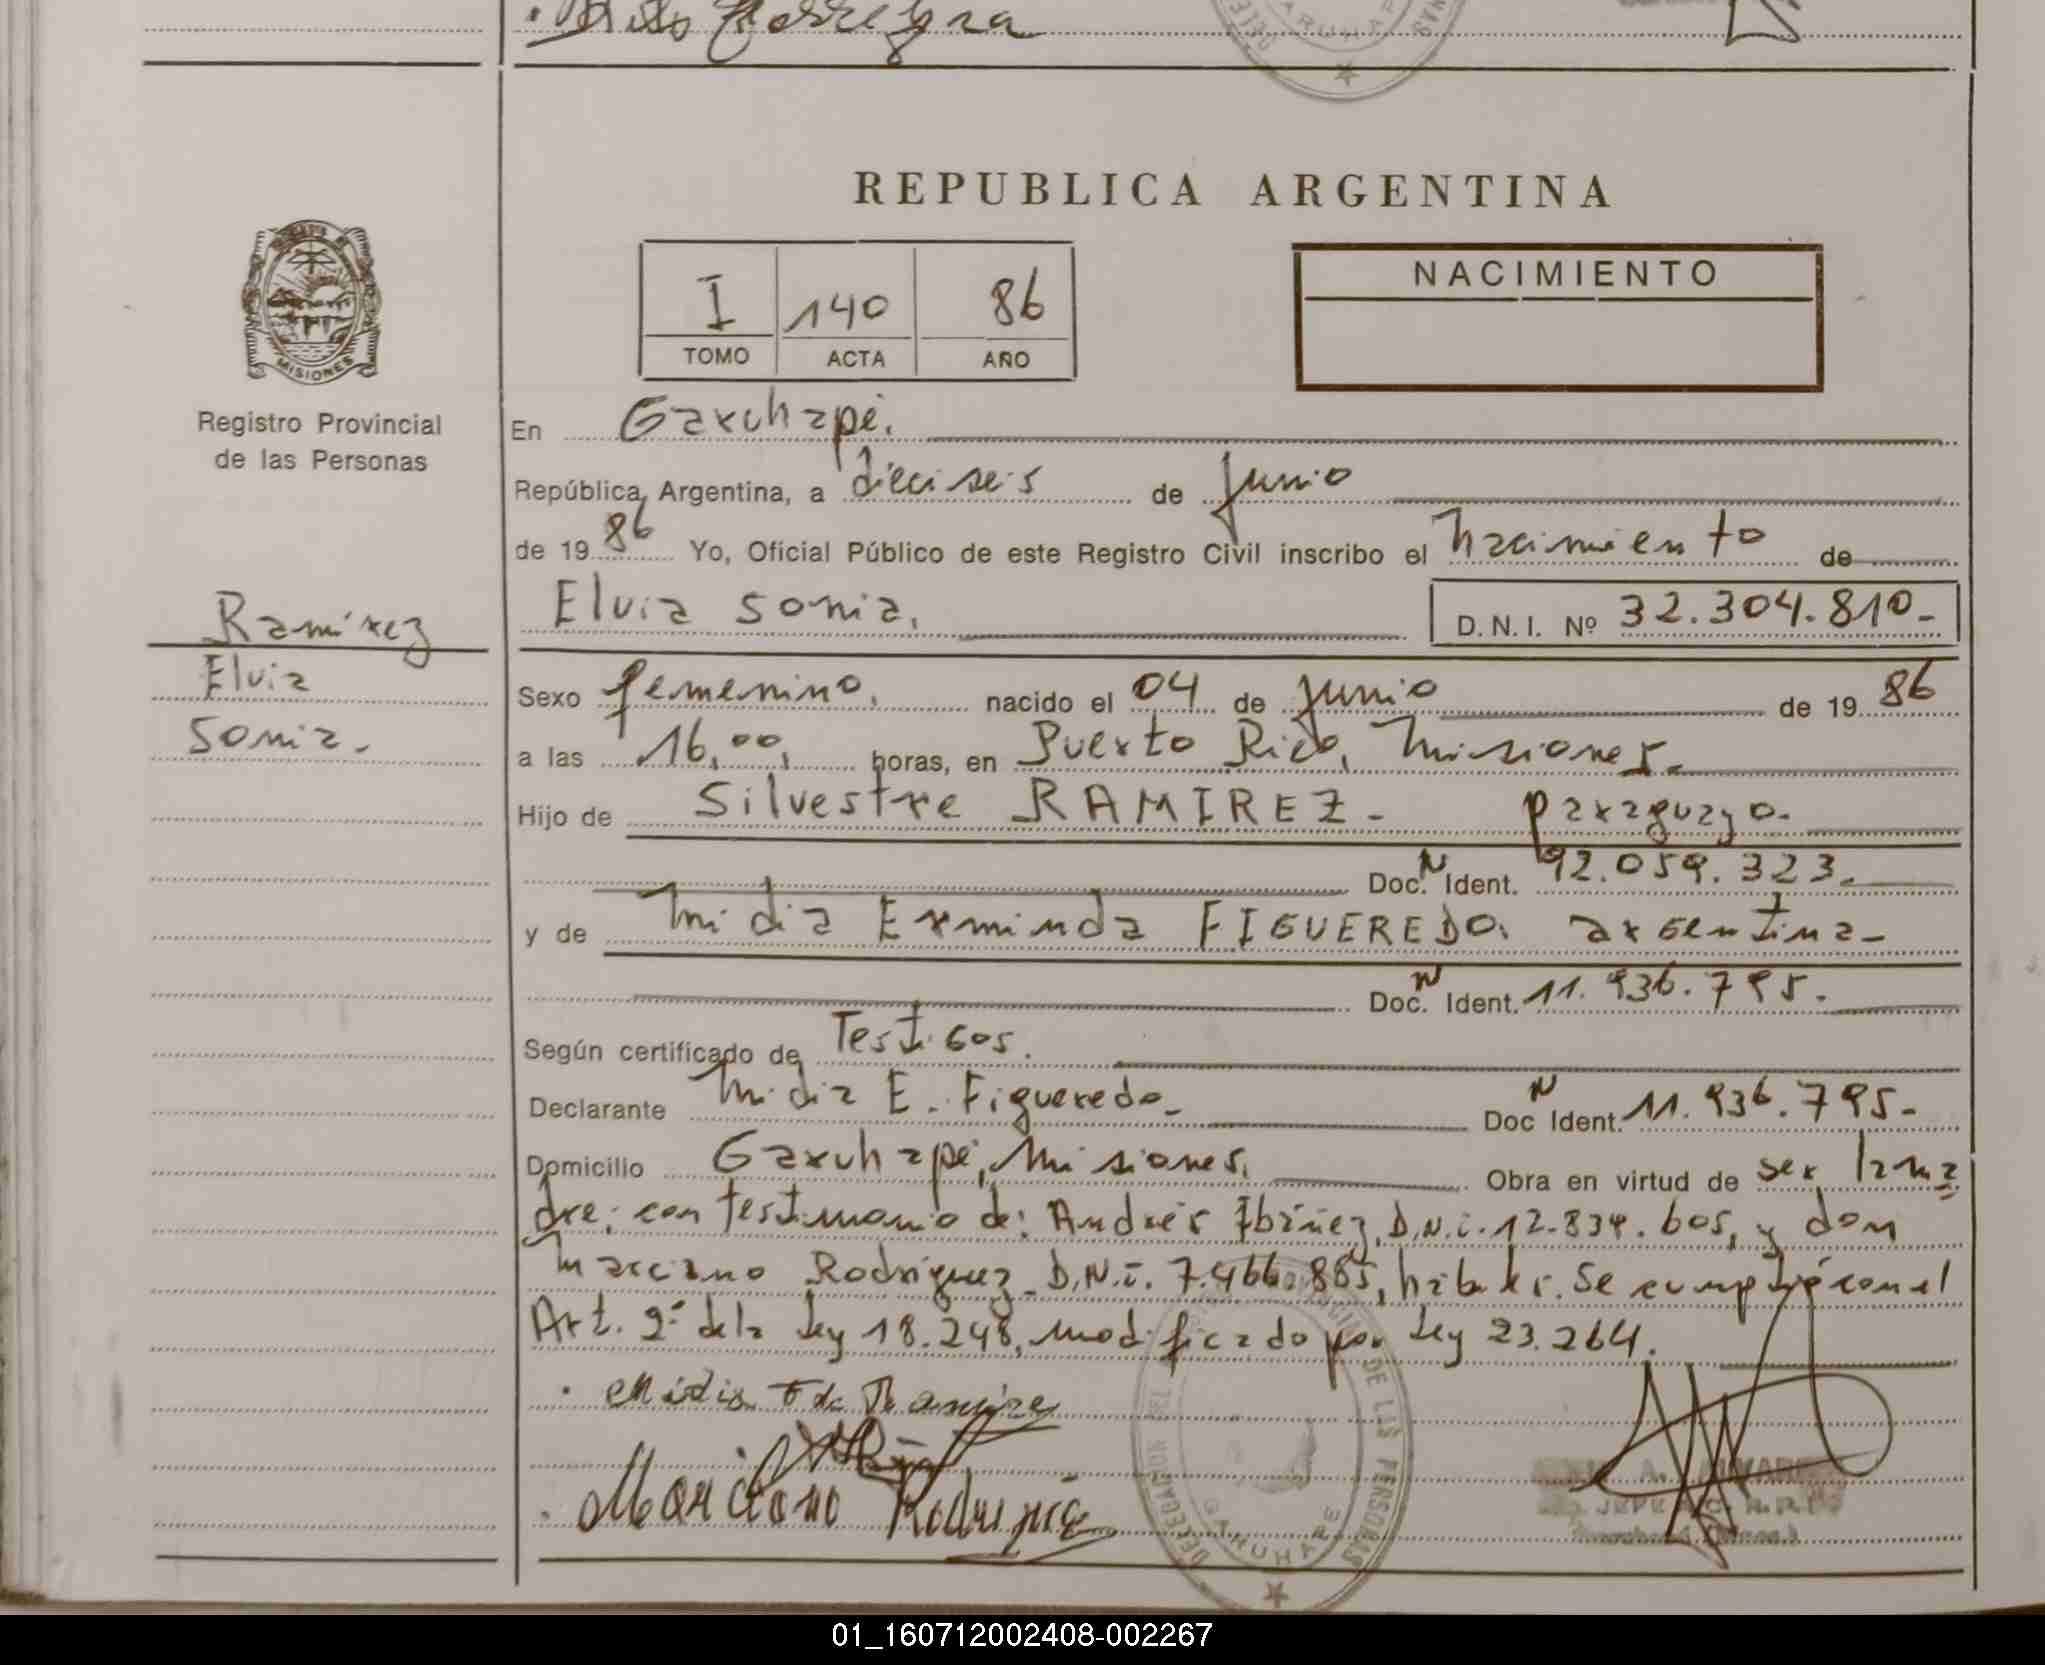 REPUBLICA ARGENTINA
I 140 86
TOMO ACTA AÑO
NACIMIENTO
MISIONES
Registro Provincial
de las Personas
Ramírez
Elvia
Sonia.
En Garuhapé.
República Argentina, a dieciseis de Junio
de 19 86 Yo, Oficial Público de este Registro Civil inscribo el Nacimiento de
Elvia Sonia.
D. N. I. Nº 32.304.810-
Sexo femenino. nacido el 04 de Junio de 19 86
a las 16,00, horas, en Puerto Rico, Misiones.
Hijo de Silvestre RAMIREZ - paraguayo.
Doc. N Ident. 92.059.323.
y de Midia Erminda FIGUEREDO. argentina-
Doc. N Ident. 11.936.795.
Según certificado de Testigos.
Declarante Midia E. Figueredo- Doc N Ident. 11.936.795-
Domicilio Garuhapé, Misiones. Obra en virtud de ser la ma
dre; con testimonio de: Andrés Ibáñez, D.N.i. 12.834.605, y don
Marciano Rodríguez D.N.i. 7.466.885, hábiles. Se cumplió con el
Art. 2º de la Ley 18.248, modificado por Ley 23.264.
Marciano Rodriguez
DELEGACION DEL DE LAS PERSONAS
GARUHAPE
01_160712002408-002267